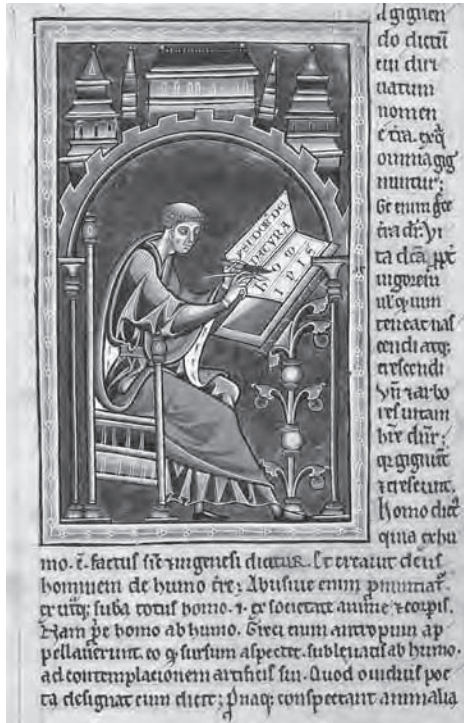 YSIDOR' DE
NATVRA
gignen
do dictū
cui diri
uatum
nomen
ē tra. exq̄
omnia gig
nuntur;
Ge enim
uigorem
teneat nas
cendi atq;
crescendi
7 arbo
res uitam
gignūt
7 crescunt.
Homo dict'
quia ex hu
mo. ē. factus sic̄ 7 ingenesi dicitur. Et creauit deus
hominem de humo tre; Abusiue enim pnuntiat.
ex utq; suba totus homo. i. ex societate anime 7 corpis.
Nam ppe homo ab humo. Greci eum antropum ap
pellauerunt. eo q̄ sursum aspectet. subleuatus ab humo.
ad contemplacionem artificis sui. Quod ouidius poe
ta designat cum dicit; Pnaq; conspectant animalia